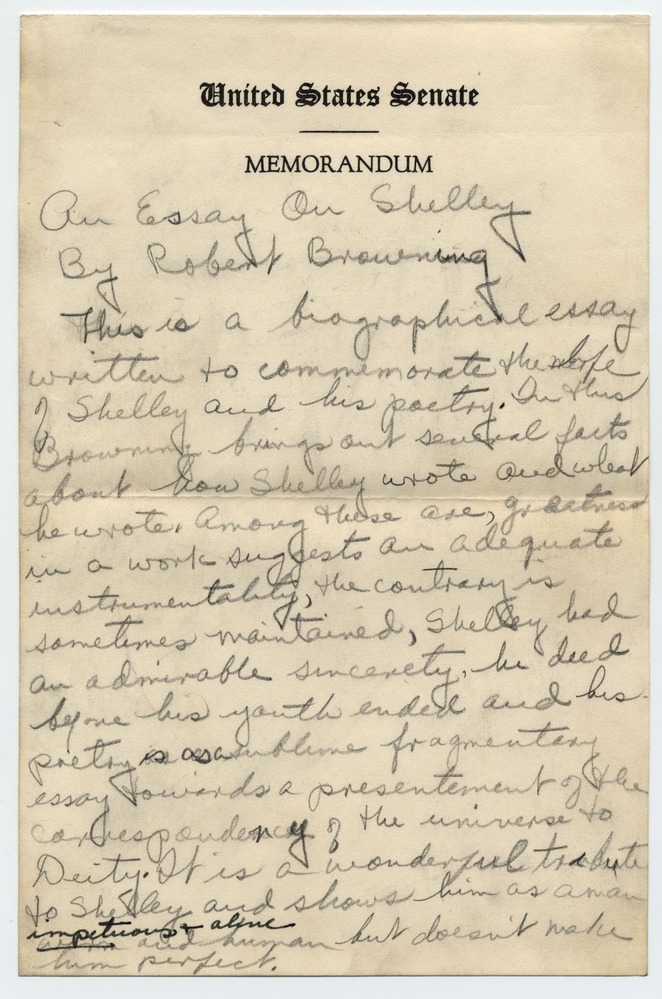 United States Senate
MEMORANDUM
An Essay On Shelley
By Robert Browning
This is a biographical essay
written to commemorate the life
of Shelley and his poetry. In this
Browning brings out several facts
about how Shelley wrote and what
he wrote. Among these are, greatness
in a work suggests an adequate
instrumentality, the contrary is
sometimes maintained, Shelley had
an admirable sincerety, he died
before his youth ended and his
poetry is as a sublime fragmentary
essay towards a presentement of the
correspondency of the universe to
Deity. It is a wonderful tribute
to Shelley and shows him as a man
impetuous & alive
and human but doesn't make
him perfect.